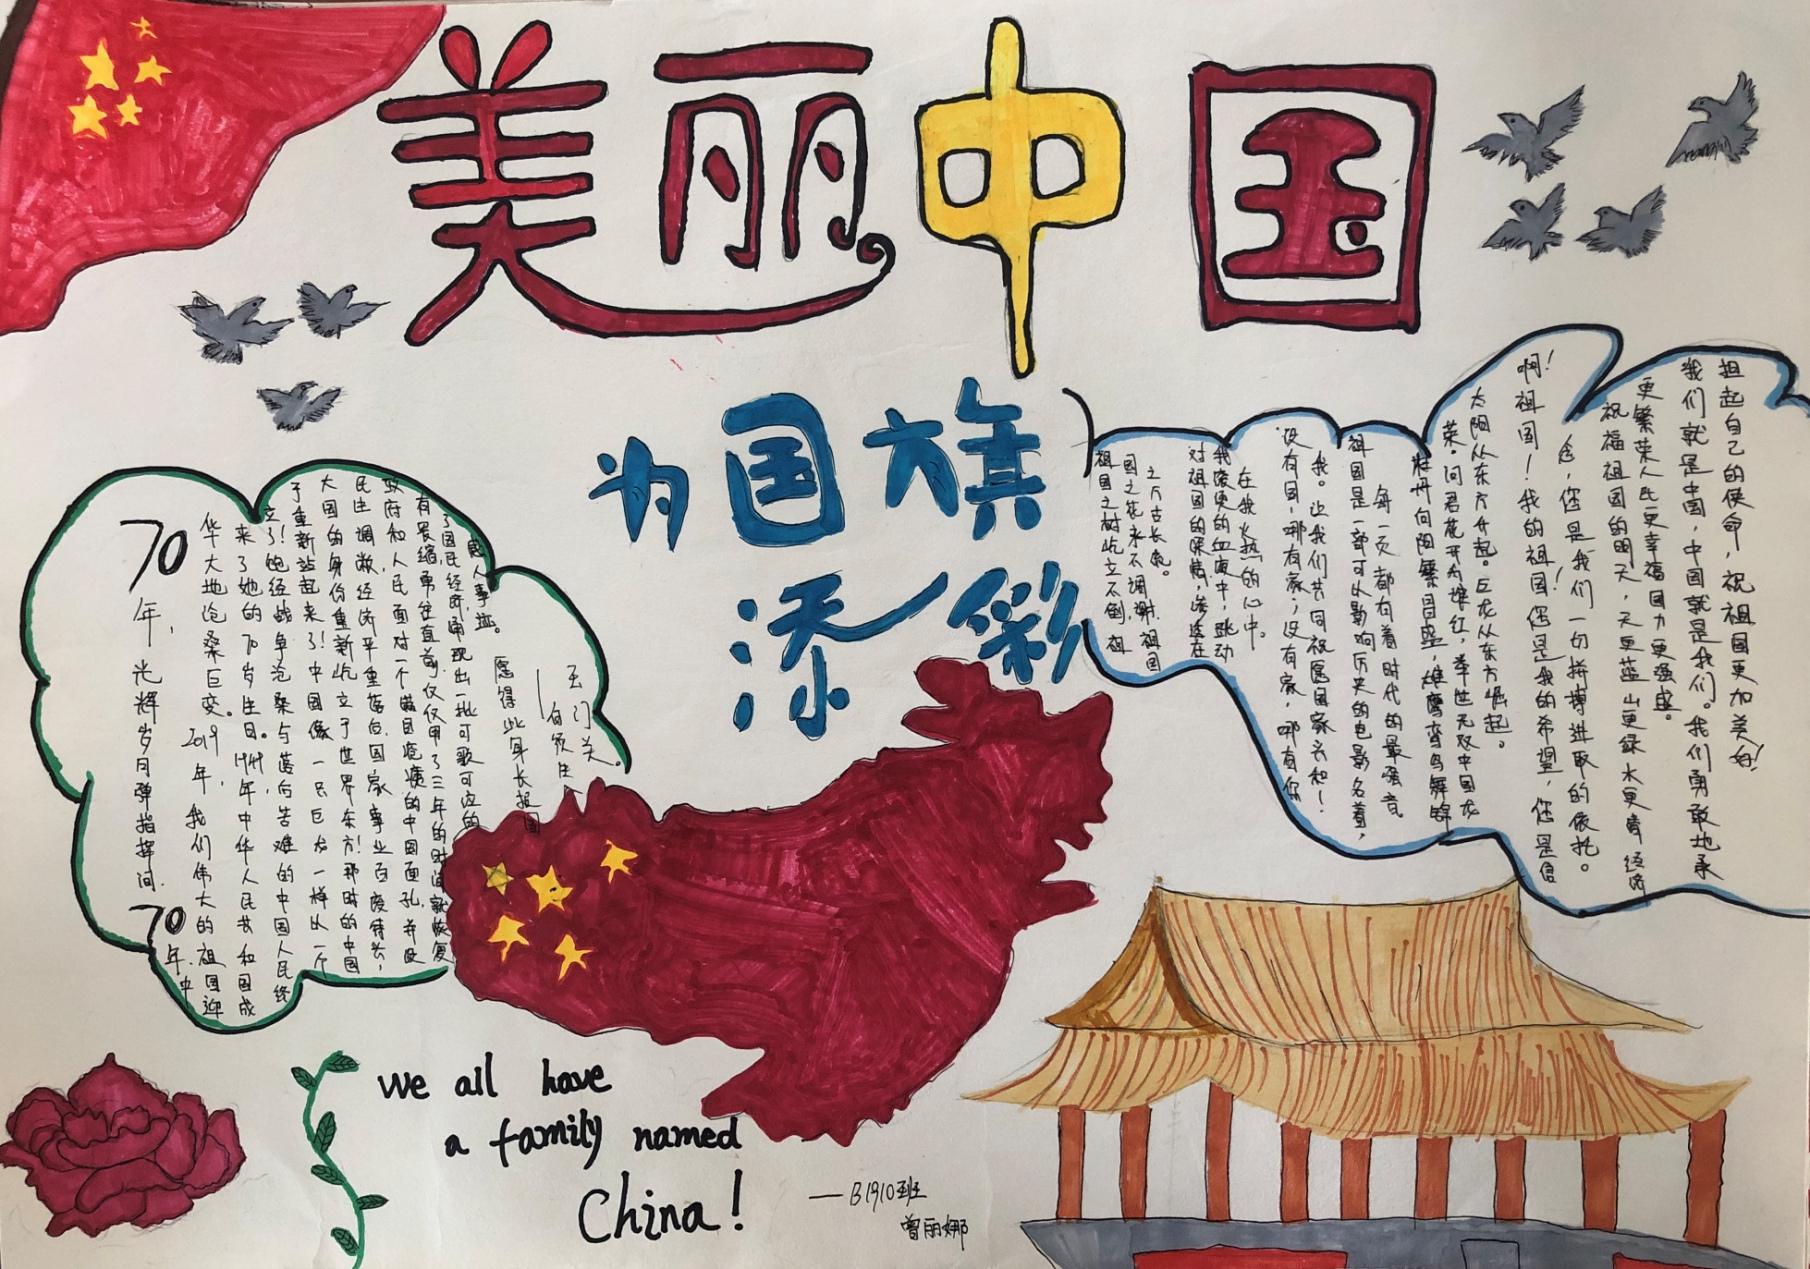 美丽中国
为国旗
添彩
70年,光辉岁月弹指挥间.
70年.中
华大地沧桑巨变。2019年,我们伟大的祖国迎
来了她的70岁生日。1949年中华人民共和国成
立了!饱经战争沧桑与落后苦难的中国人民终
于重新站起来了!中国像一只巨龙一样以一个
大国的身份重新屹立于世界东方!那时的中国
民生凋敝经济严重落后,国家事业百废待兴,
政府和人民面对一个满目疮痍的中国面孔,并没
有畏缩勇往直前,仅仅用了三年的时间就恢复
了国民经济,涌现出一批可歌可泣的
感人事迹。
愿得此身长报国
何须生入
玉门关。
祖国之树屹立不倒,祖
国之花永不凋谢.祖国
之万古长气。
对祖国的深情,渗透在
我滚烫的血液中,跳动
在我火热的心中。
没有国,哪有家;没有家,哪有你
我。让我们共同祝愿国家永和!
祖国是一部可以影响历史的电影名著,
每一页都有着时代的最强音。
牡丹向阳繁昌盛,雄鹰鸟舞锦
荣。问君花开为谁红,举世无双中国龙
太阳从东方升起。巨龙从东方崛起。
啊!祖国!我的祖国!您是我的希望,您是信
念,您是我们一切拼搏进取的依托。
祝福祖国的明天,天更蓝山更绿水更清经济
更繁荣人民更幸福国力更强盛。
我们就是中国,中国就是我们。我们勇敢地承
担起自己的使命,祝祖国更加美好!
We all have
a family named
China!
—B1910班
曾丽娜